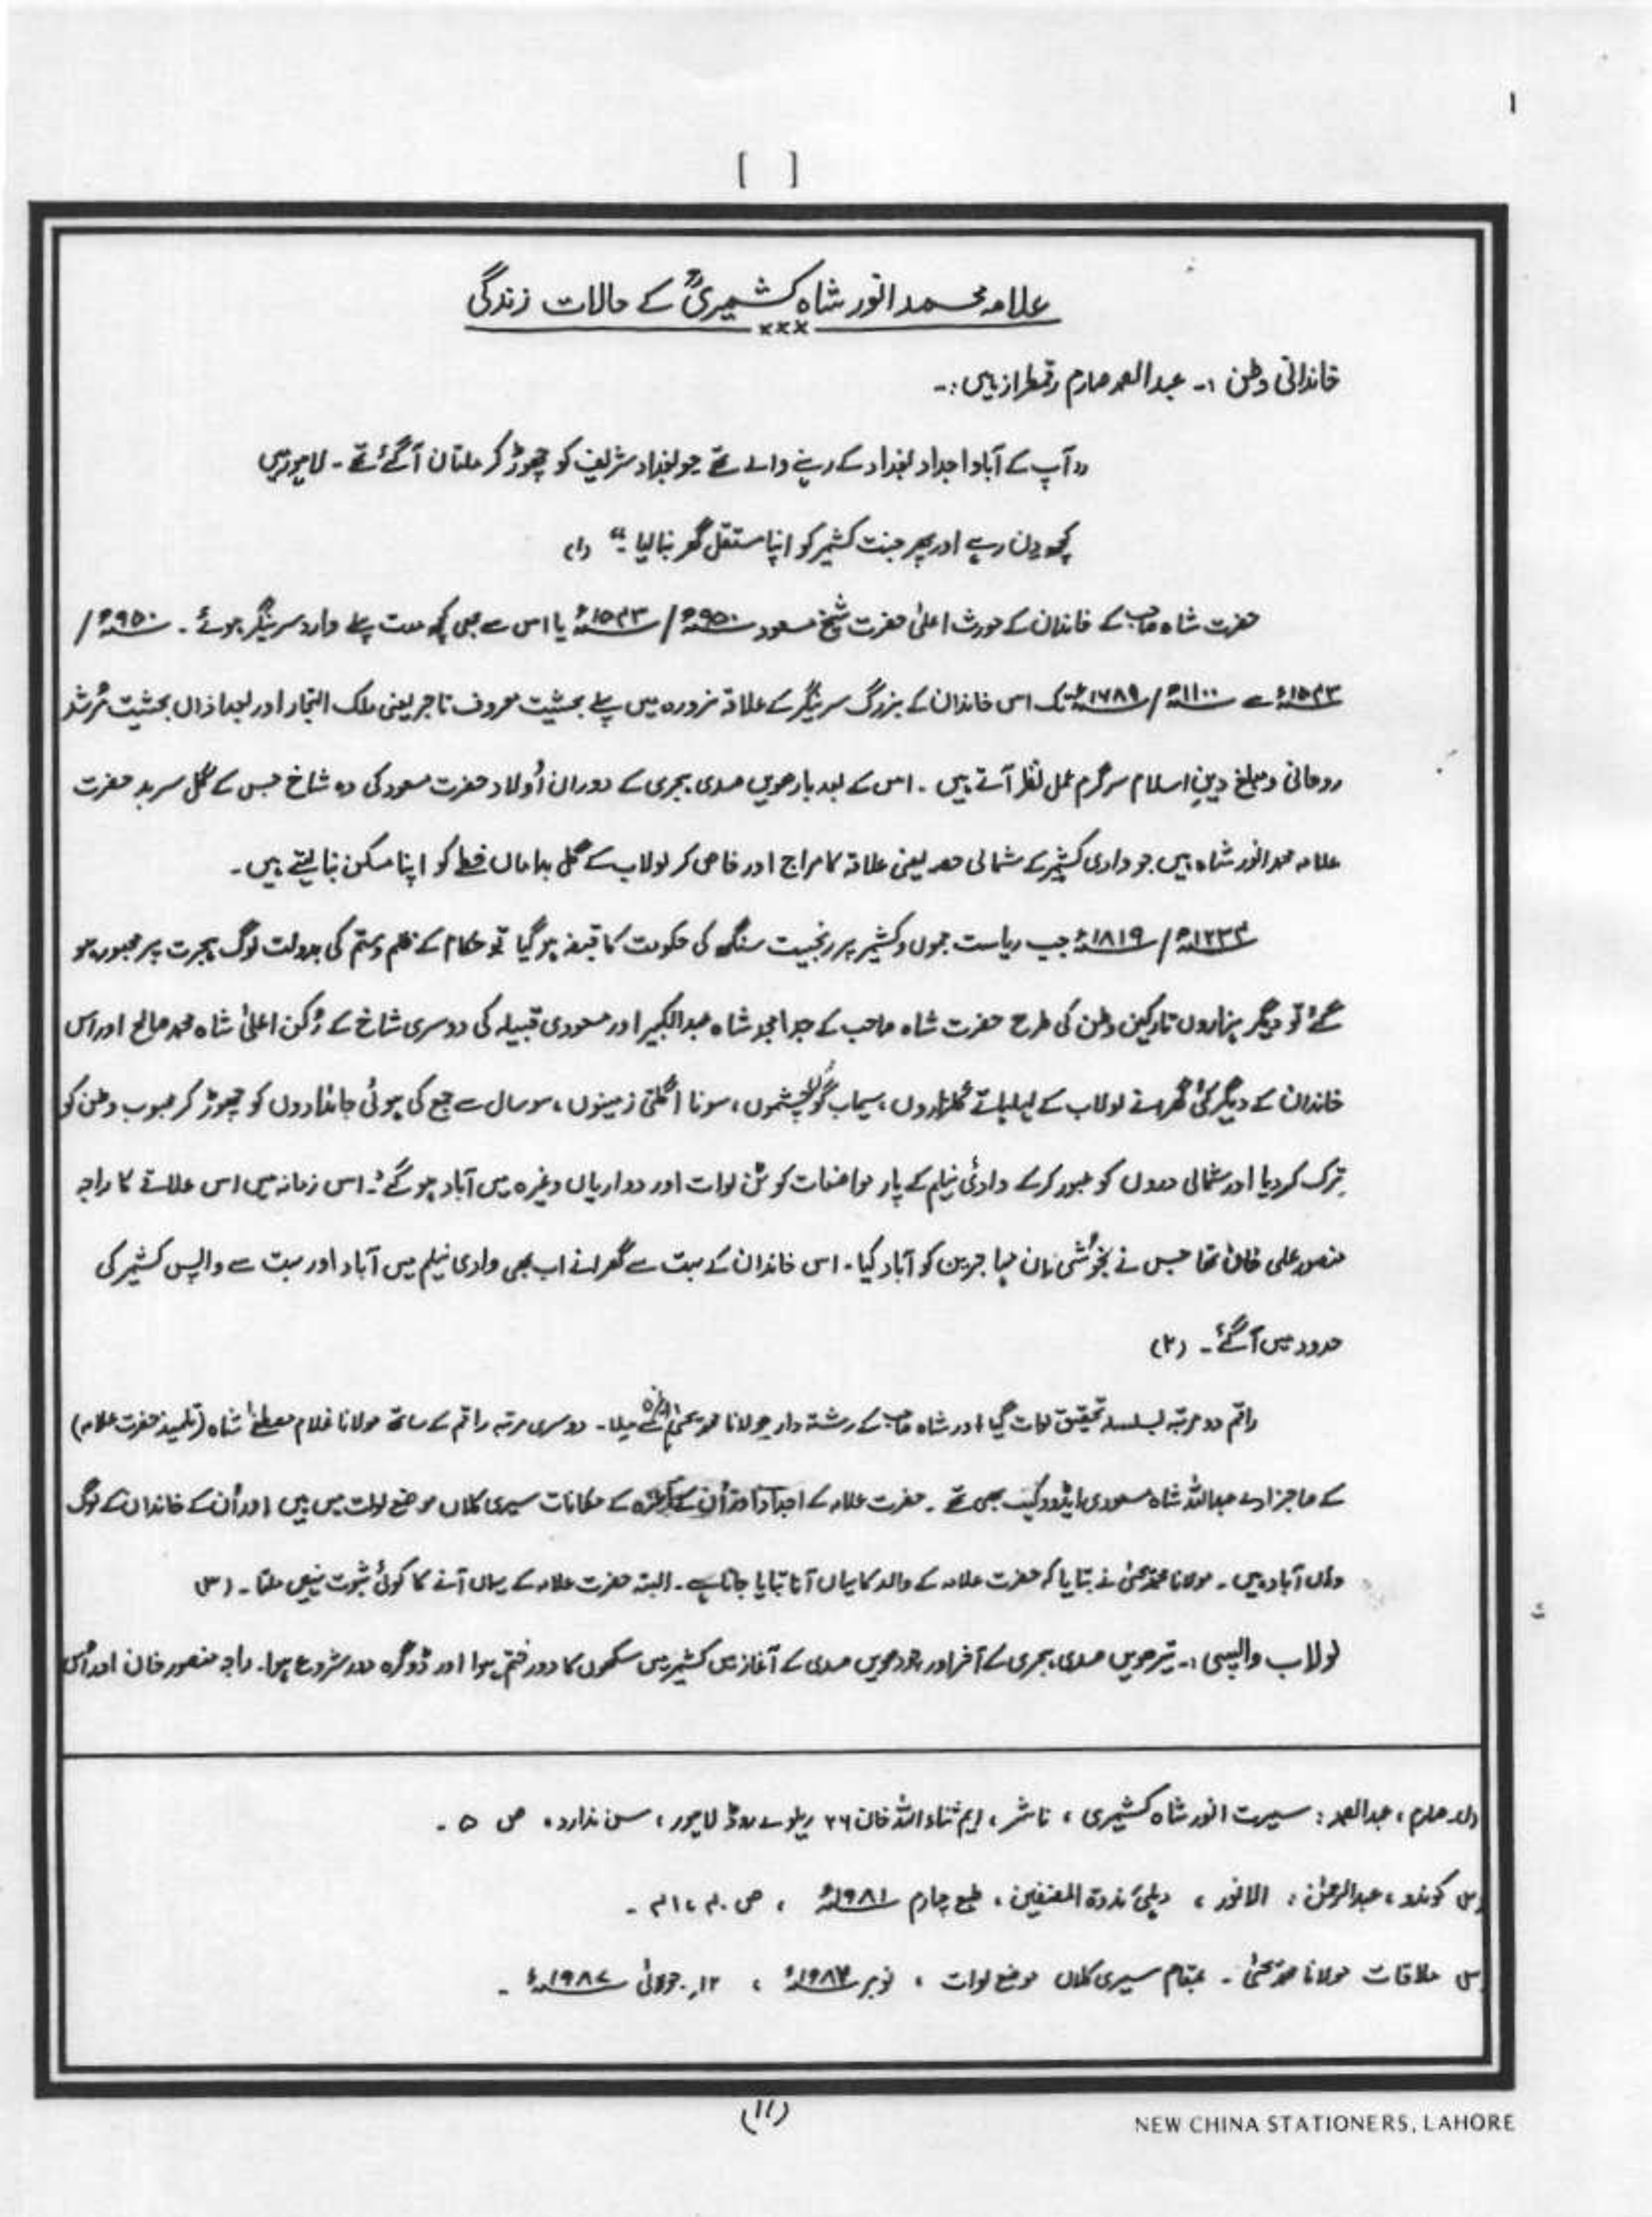 ۱
[ ]
علامہ محمد انور شاہ کشمیریؒ کے حالات زندگی
×××
خاندانی وطن :۔ عبدالصمد صارم رقمطراز ہیں :۔
"آپ کے آباواجداد بغداد کے رہنے والے تھے جو بغداد شریف کو چھوڑ کر ملتان آگئے تھے ۔ لاہور میں
کچھ دن رہے اور پھر جنت کشمیر کو اپنا مستقل گھر بنالیا ۔" (۱)
حضرت شاہ صاحب کے خاندان کے مورث اعلیٰ حضرت شیخ مسعود ۹۵۰ھ / ۱۵۴۳ء یا اس سے بھی کچھ مدت پہلے وارد سرینگر ہوئے ۔ ۹۵۰ھ /
۱۵۴۳ء سے ۱۱۰۰ھ / ۱۷۸۹ء تک اس خاندان کے بزرگ سرینگر کے علاقہ نرورہ میں پہلے بحیثیت معروف تاجر یعنی ملک التجار اور بعد ازاں بحیثیت مُرشد
روحانی و مبلغ دینِ اسلام سرگرم عمل نظر آتے ہیں ۔ اس کے بعد بارھویں صدی ہجری کے دوران اُولاد حضرت مسعود کی وہ شاخ جس کے گُل سرسبد حضرت
علامہ محمد انور شاہ ہیں جو وادی کشمیر کے شمالی حصہ یعنی علاقہ کامراج اور خاص کر لولاب کے گل بداماں خطے کو اپنا مسکن بنا لیتے ہیں ۔
۱۲۳۴ھ / ۱۸۱۹ء جب ریاست جموں و کشمیر پر رنجیت سنگھ کی حکومت کا قبضہ ہو گیا تو حکام کے ظلم و ستم کی بدولت لوگ ہجرت پر مجبور ہو
گئے تو دیگر ہزاروں تارکین وطن کی طرح حضرت شاہ صاحب کے جد امجد شاہ عبدالکبیر اور مسعودی قبیلہ کی دوسری شاخ کے رُکن اعلیٰ شاہ محمد صالح اور اس
خاندان کے دیگر کئی گھرانے لولاب کے لہلہاتے گلزاروں ، سیماب گوں چشموں ، سونا اگلتی زمینوں ، سو سال سے جمع کی ہوئی جائدادوں کو چھوڑ کر محبوب وطن کو
ترک کردیا اور شمالی دروں کو عبور کرکے وادئ نیلم کے پار مواضعات کوٹن لوات اور دواریاں وغیرہ میں آباد ہو گئے ۔ اس زمانہ میں اس علاقے کا راجہ
منصور علی خان تھا جس نے بخوشی ان مہاجرین کو آباد کیا ۔ اس خاندان کے بہت سے گھرانے اب بھی وادی نیلم میں آباد اور بہت سے واپس کشمیر کی
حدود میں آگئے ۔ (۲)
راقم دو مرتبہ بسلسلہ تحقیق لوات گیا اور شاہ صاحب کے رشتہ دار مولانا محمد یحیٰی سے ملا ۔ دوسری مرتبہ راقم کے ساتھ مولانا غلام مصطفےٰ شاہ (تلمیذ حضرت علامہ)
کے صاحبزادے عبداللہ شاہ مسعودی ایڈووکیٹ بھی تھے ۔ حضرت علامہ کے اجداد اور اُن کے کے مکانات سیری کلاں موضع لوات میں ہیں اور اُن کے خاندان کے لوگ
وہاں آباد ہیں ۔ مولانا محمد یحیٰی نے بتایا کہ حضرت علامہ کے والد کا یہاں آنا بتایا جاتا ہے ۔ البتہ حضرت علامہ کے یہاں آنے کا کوئی ثبوت نہیں ملتا ۔ (۳)
لولاب واپسی :۔ تیرھویں صدی ہجری کے آخر اور چودھویں صدی کے آغاز میں کشمیر میں سکھوں کا دور ختم ہوا اور ڈوگرہ دور شروع ہوا ۔ راجہ منصور خان اور اُس
(۱) صارم ، عبدالصمد : سیرت انور شاہ کشمیری ، ناشر ، ایم ثناء اللہ خان ۲۶ ریلوے روڈ لاہور ، سن ندارد ، ص ۵ ۔
(۲) کوندو ، عبدالرحمٰن : الانور ، دہلی ندوۃ المصنفین ، طبع چہارم ۱۹۸۱ء ، ص ۴۰ ، ۴۱ ۔
(۳) ملاقات مولانا محمد یحیٰی ۔ بمقام سیری کلاں موضع لوات ، نومبر ، ۱۲ جولائی ۱۹۸۷ء ۔
(۱۱)
NEW CHINA STATIONERS, LAHORE